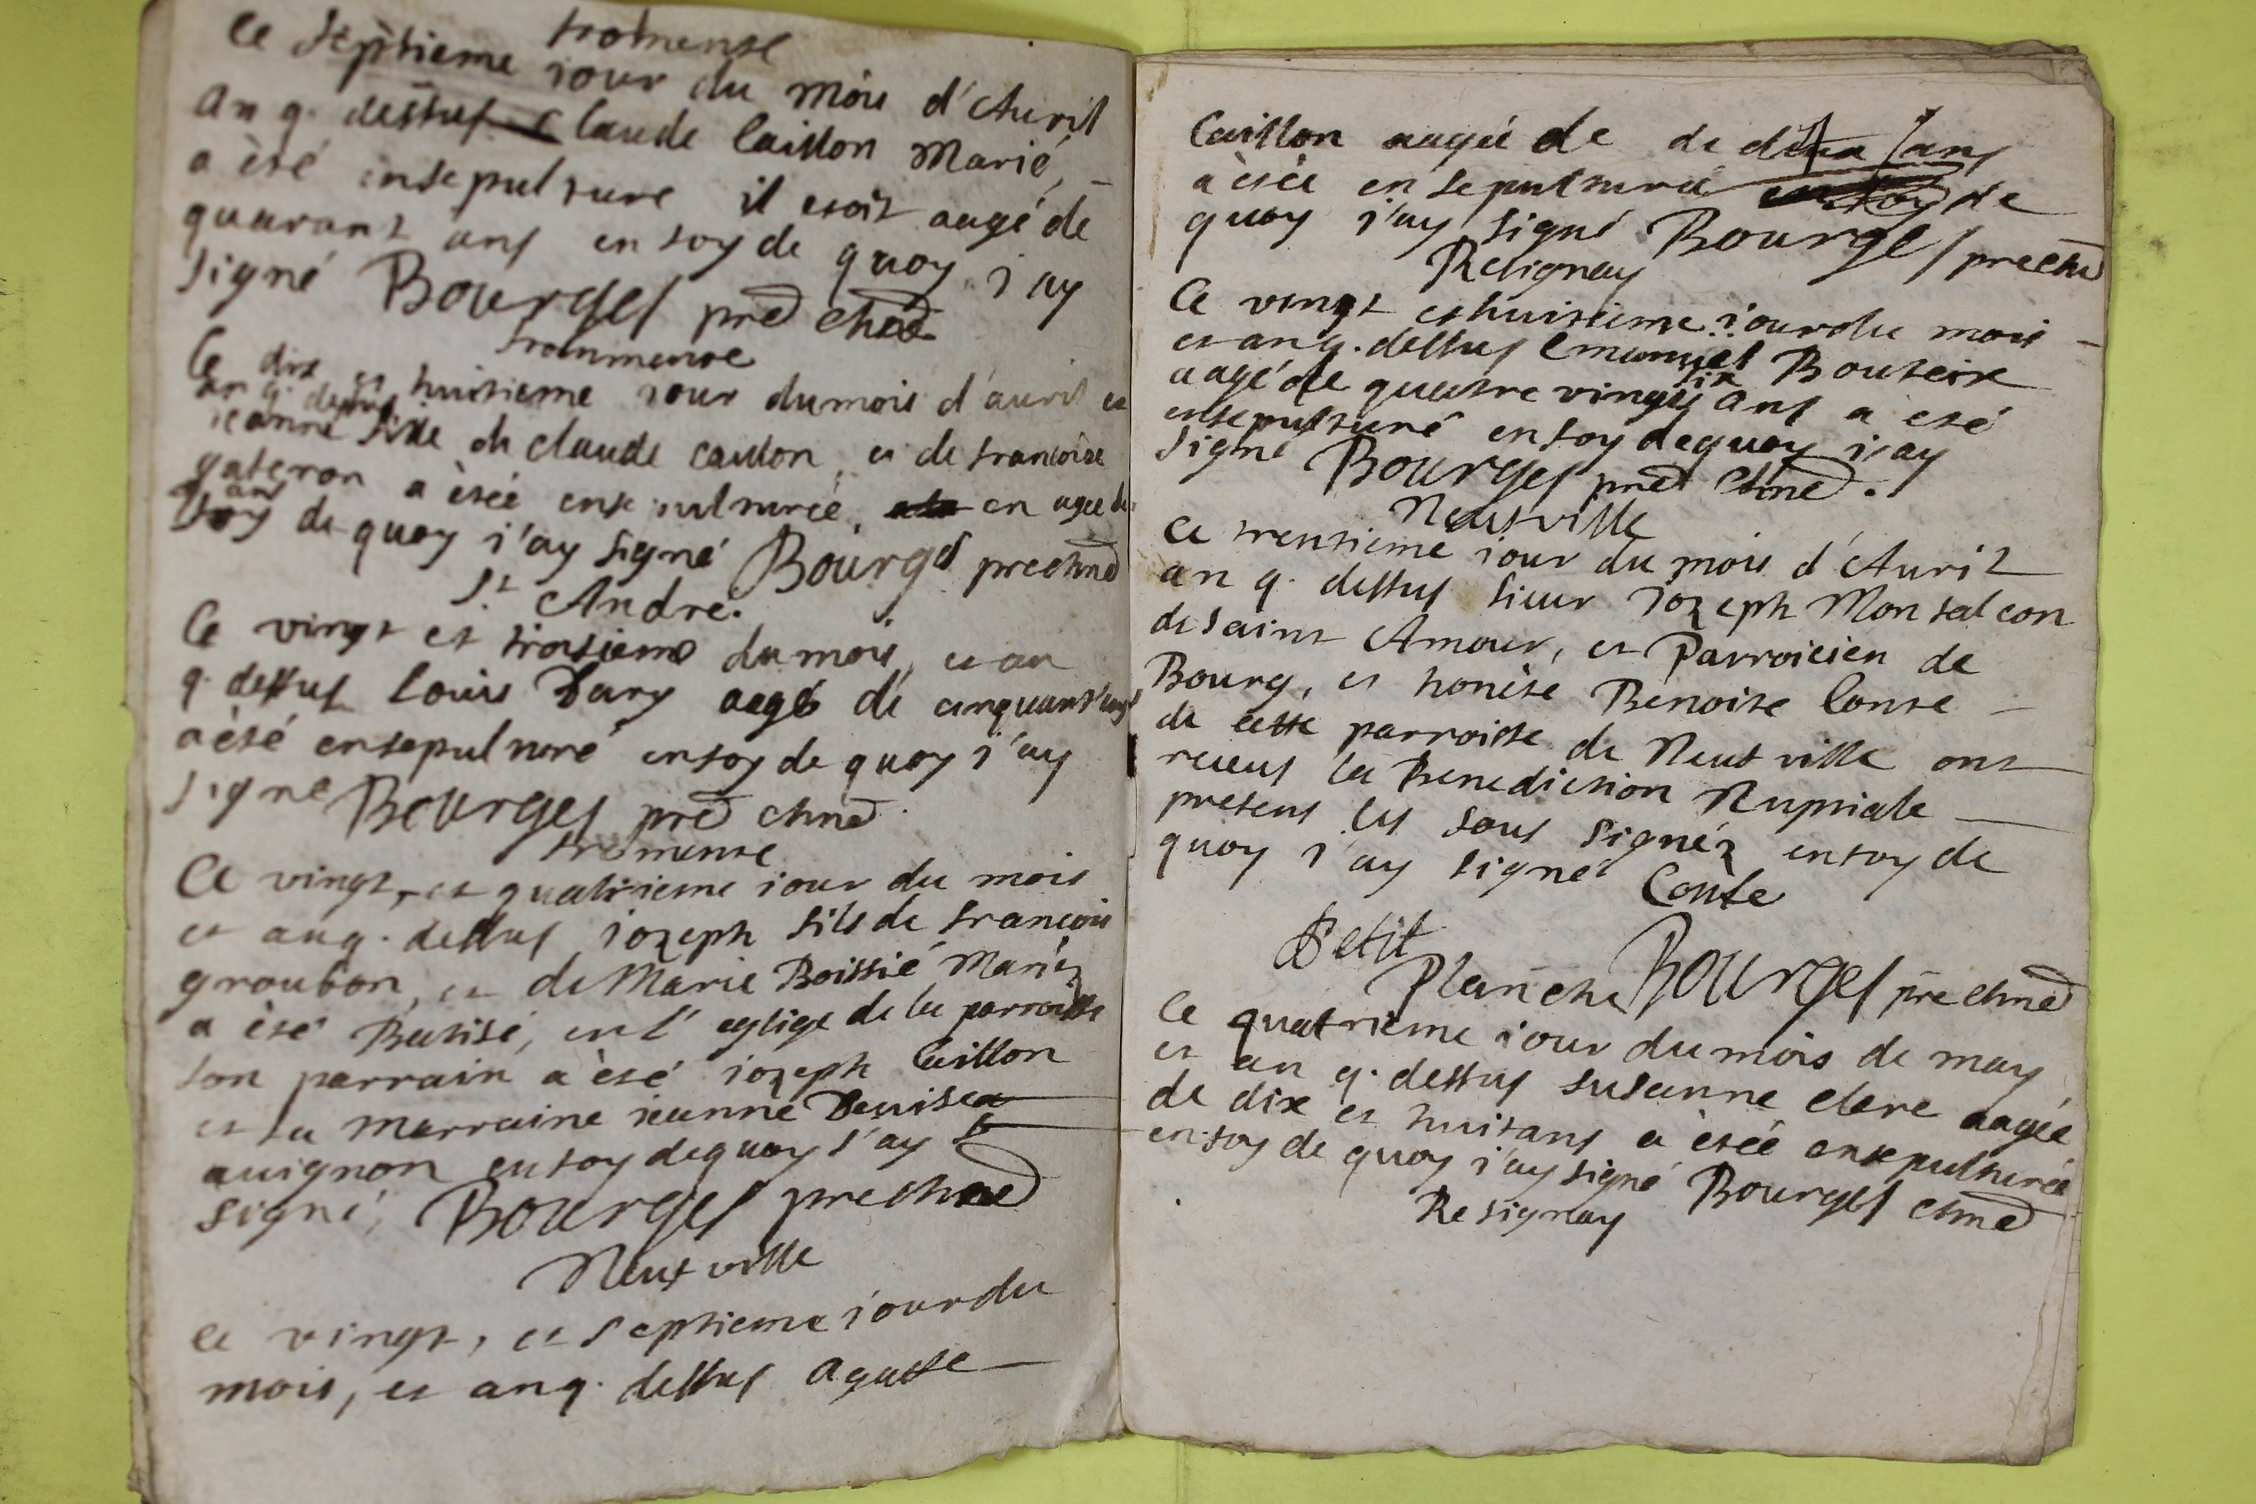 fromense
Ce septieme jour du mois d'Avril
an q. dessus Claude Caillon Marié,
a èté ensepulture il etoit aagé de
quarant ans en foy de quoy j'ay
signé Bourges pre chne
frommense
Ce dix et huitieme jour du mois d'avril et
an q. dessus
jeanne fille de claude caillon, et de francoise
gateron a ètéé ensepulturée, en agee de
an
foy de quoy j'ay signé Bourges pre chne
St André.
Ce vingt et troisieme du mois, et an
q. dessus Louis Dary aagé de cinquant'ans
a èté ensepulturé en foy de quoy j'ay
signé Bourges pre chne
fromense
Ce vingt, et quatrieme jour du mois
et an q. dessus jozeph fils de francois
groubon, et de Marie Boissié Mariéz
a èté Batisé, en l'eglise de la parroisse
son parrain a èté jozeph Caillon
et sa marraine jeanne Denise
avignon en foy de quoy j'ay
signé, Bourges pre chne
Neufville
Ce vingt, et septieme jour du
mois, et an q. dessus agathe
Caillon aagée de de ans
a ètéé ensepulturée de
quoy j'ay signé Bourges pre chne
Resignay
Ce vingt et huitieme jour du mois
et an q. dessus emanuel Bouteix
six
aagé de quatre vingts ans a eté
ensepulturé en foy de quoy j'ay
signé Bourges pre chne.
Neufville
Ce trentieme jour du mois d'Avril
an q. dessus sieur jozeph Monfalcon
de saint Amour, et Parroicien de
Bourg, et honète Benoite Conte
de cette parroisse de Neufville ont
receus la Benediction Nuptiale
presens les sous signéz en foy de
quoy j'ay signé Conte
Petit
Planche Bourges pre chne
Ce quatrieme jour du mois de may
et an q. dessus susanne clere aagée
de dix et huit ans a ètéé ensepulturée
en foy de quoy j'ay signé Bourges chne
Resignay